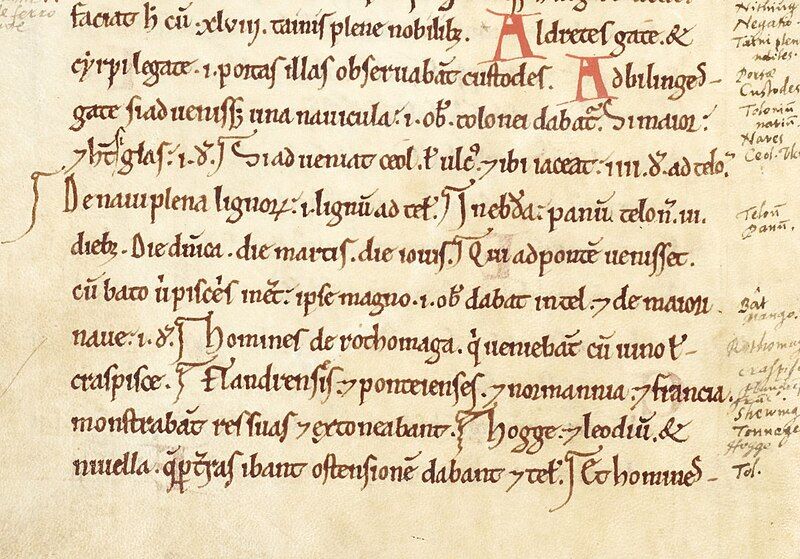 faciat h̄ cū .xlviii. tainis plene nobilib;. Aldretes gate. &
cyrpilegate .i. portas illas observabāt custodes. Adbilinges-
gate si advenissꝫ una navicula: .i. ob̄. tolonei dabat̄. Si maior:
⁊ h̄t siglas: .i. đ. Si adveniat ceol. ł ulc9. ⁊ ibi iaceat: .iiii. đ. ad telo.
De navi plena lignoꝝ: .i. lignū ad teł. In ebđa: panū. telon̄. .iii.
dieb;. Die dn̄ica. die martis. die iovis. Qui ad pontē venisset.
cū bato ubi piscēs inēt: ipse mango .i. ob̄ dabat in tel. ⁊ de maiori
nave: .i. đ. Homines de rothomago. q̇ veniebāt cū vino ł-
craspisce. Flandrenses. ⁊ ponteienses. ⁊ normannia ⁊ francia.
monstrabāt res suas ⁊ extoneabant. Hogge. ⁊ leodiū. &
nivella. q̇ ꝑ t̄ras ibant ostensionē dabant ⁊ teł. Et homines-
Nithing
Negatio
Taini plen
nobiles.
Portæ
Custodes
Toloniū
navium
Naves
Ceol. Ulc
Telon̄
Panū.
Bât
mango.
Rothomag
craspis
Shewing
Tonnage
Hogge
Tol.